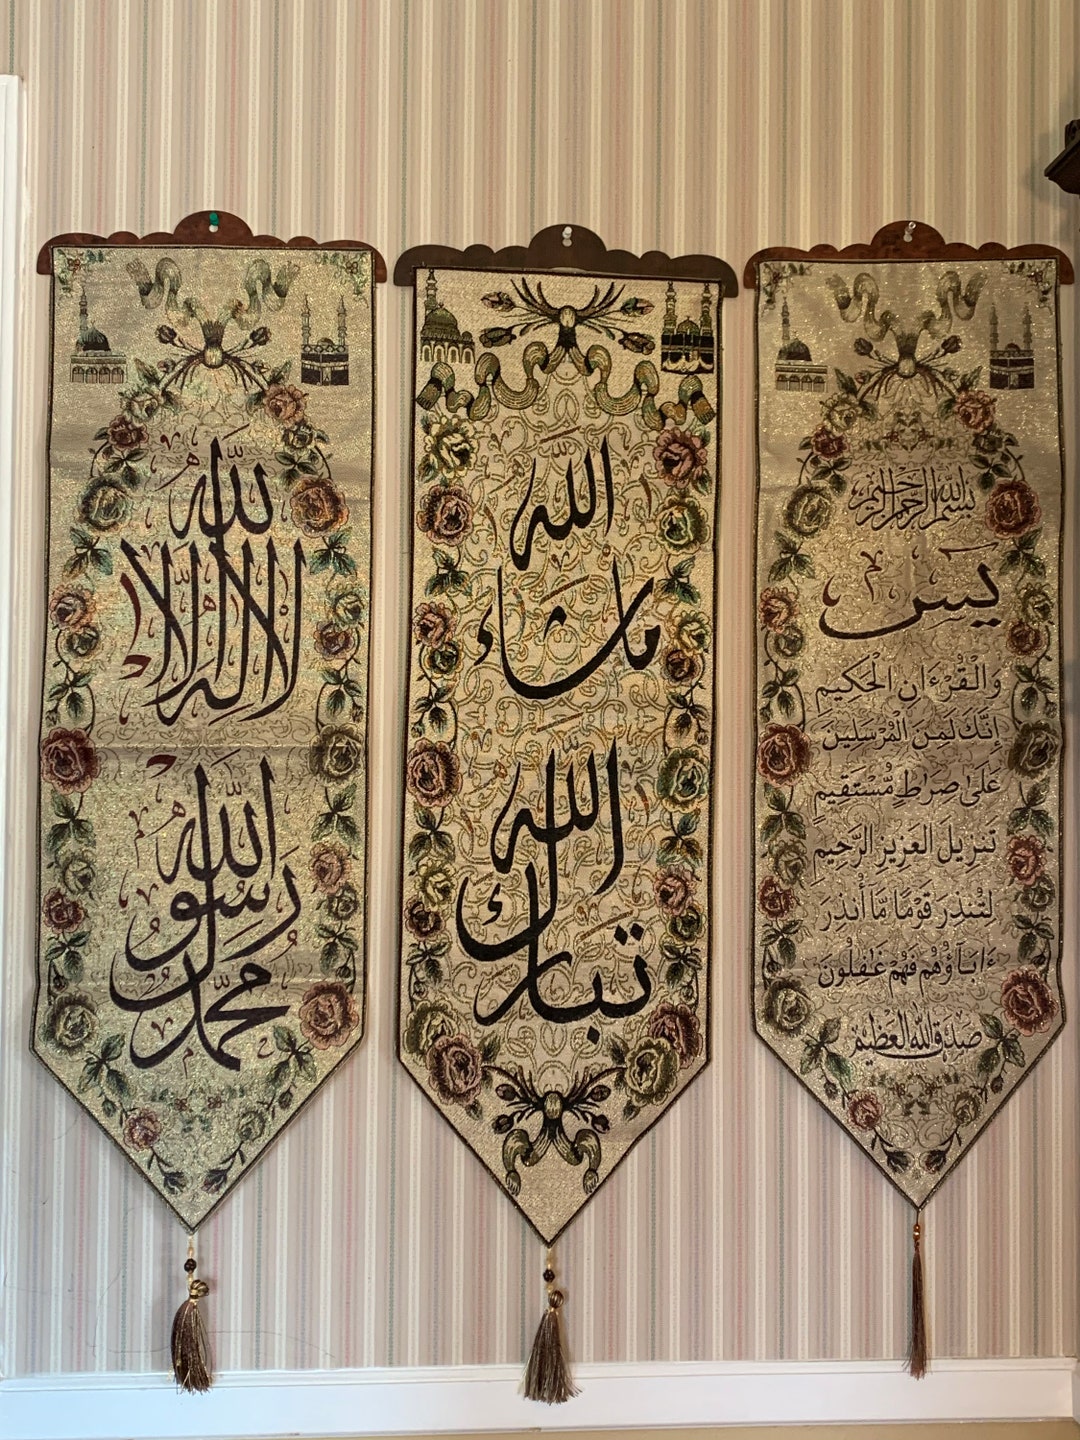 لا إله إلا الله
محمد رسول الله
ما شاء الله
تبارك الله
بِسْمِ اللهِ الرَّحْمٰنِ الرَّحِيمِ
يسٓ
وَالْقُرْءَانِ الْحَكِيمِ
إِنَّكَ لَمِنَ الْمُرْسَلِينَ
عَلَىٰ صِرَاطٍ مُّسْتَقِيمٍ
تَنزِيلَ الْعَزِيزِ الرَّحِيمِ
لِتُنذِرَ قَوْمًا مَّا أُنذِرَ
ءَابَآؤُهُمْ فَهُمْ غَٰفِلُونَ
صدق الله العظيم